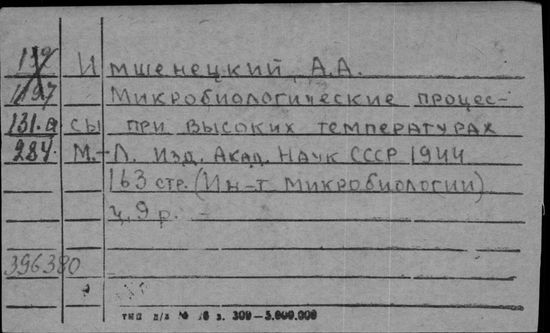 139 Имшенецкий, А.А.
1197 Микробиологические процес-
131.а сы при высоких температурах
284. М.-Л. Изд. Акад. Наук СССР 1944
163 стр. (Ин-т микробиологии)
ц. 9 р.
396380
тип з. 309—5.000.000